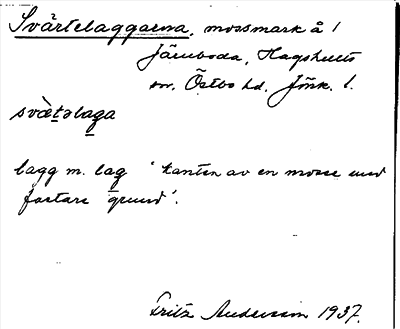 Svärtelaggarna, mossmark å 1
Järnboda, Hagshults
sn. Östbo hd. Jönk. l.
svæ̀təlaga
lagg m. lag 'kanten av en mosse med
fastare grund'.
Fritz Andersson 1937.